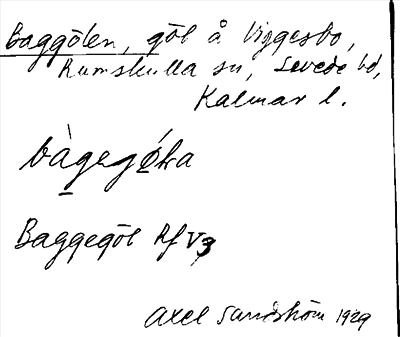 Baggölen, göl å Viggesbo,
Rumskulla sn, Sevede hd,
Kalmar l.
bàgegö́ka
Baggegöl Rf V3
Axel Sandström 1929